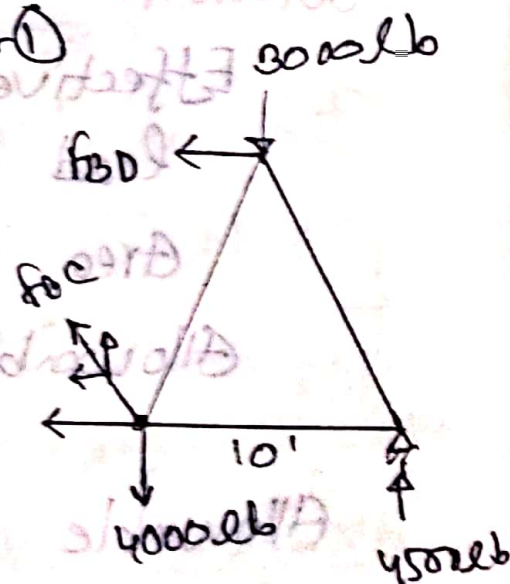 ①
3000 lb
fBD
fBC
10'
4000 lb
4500 lb